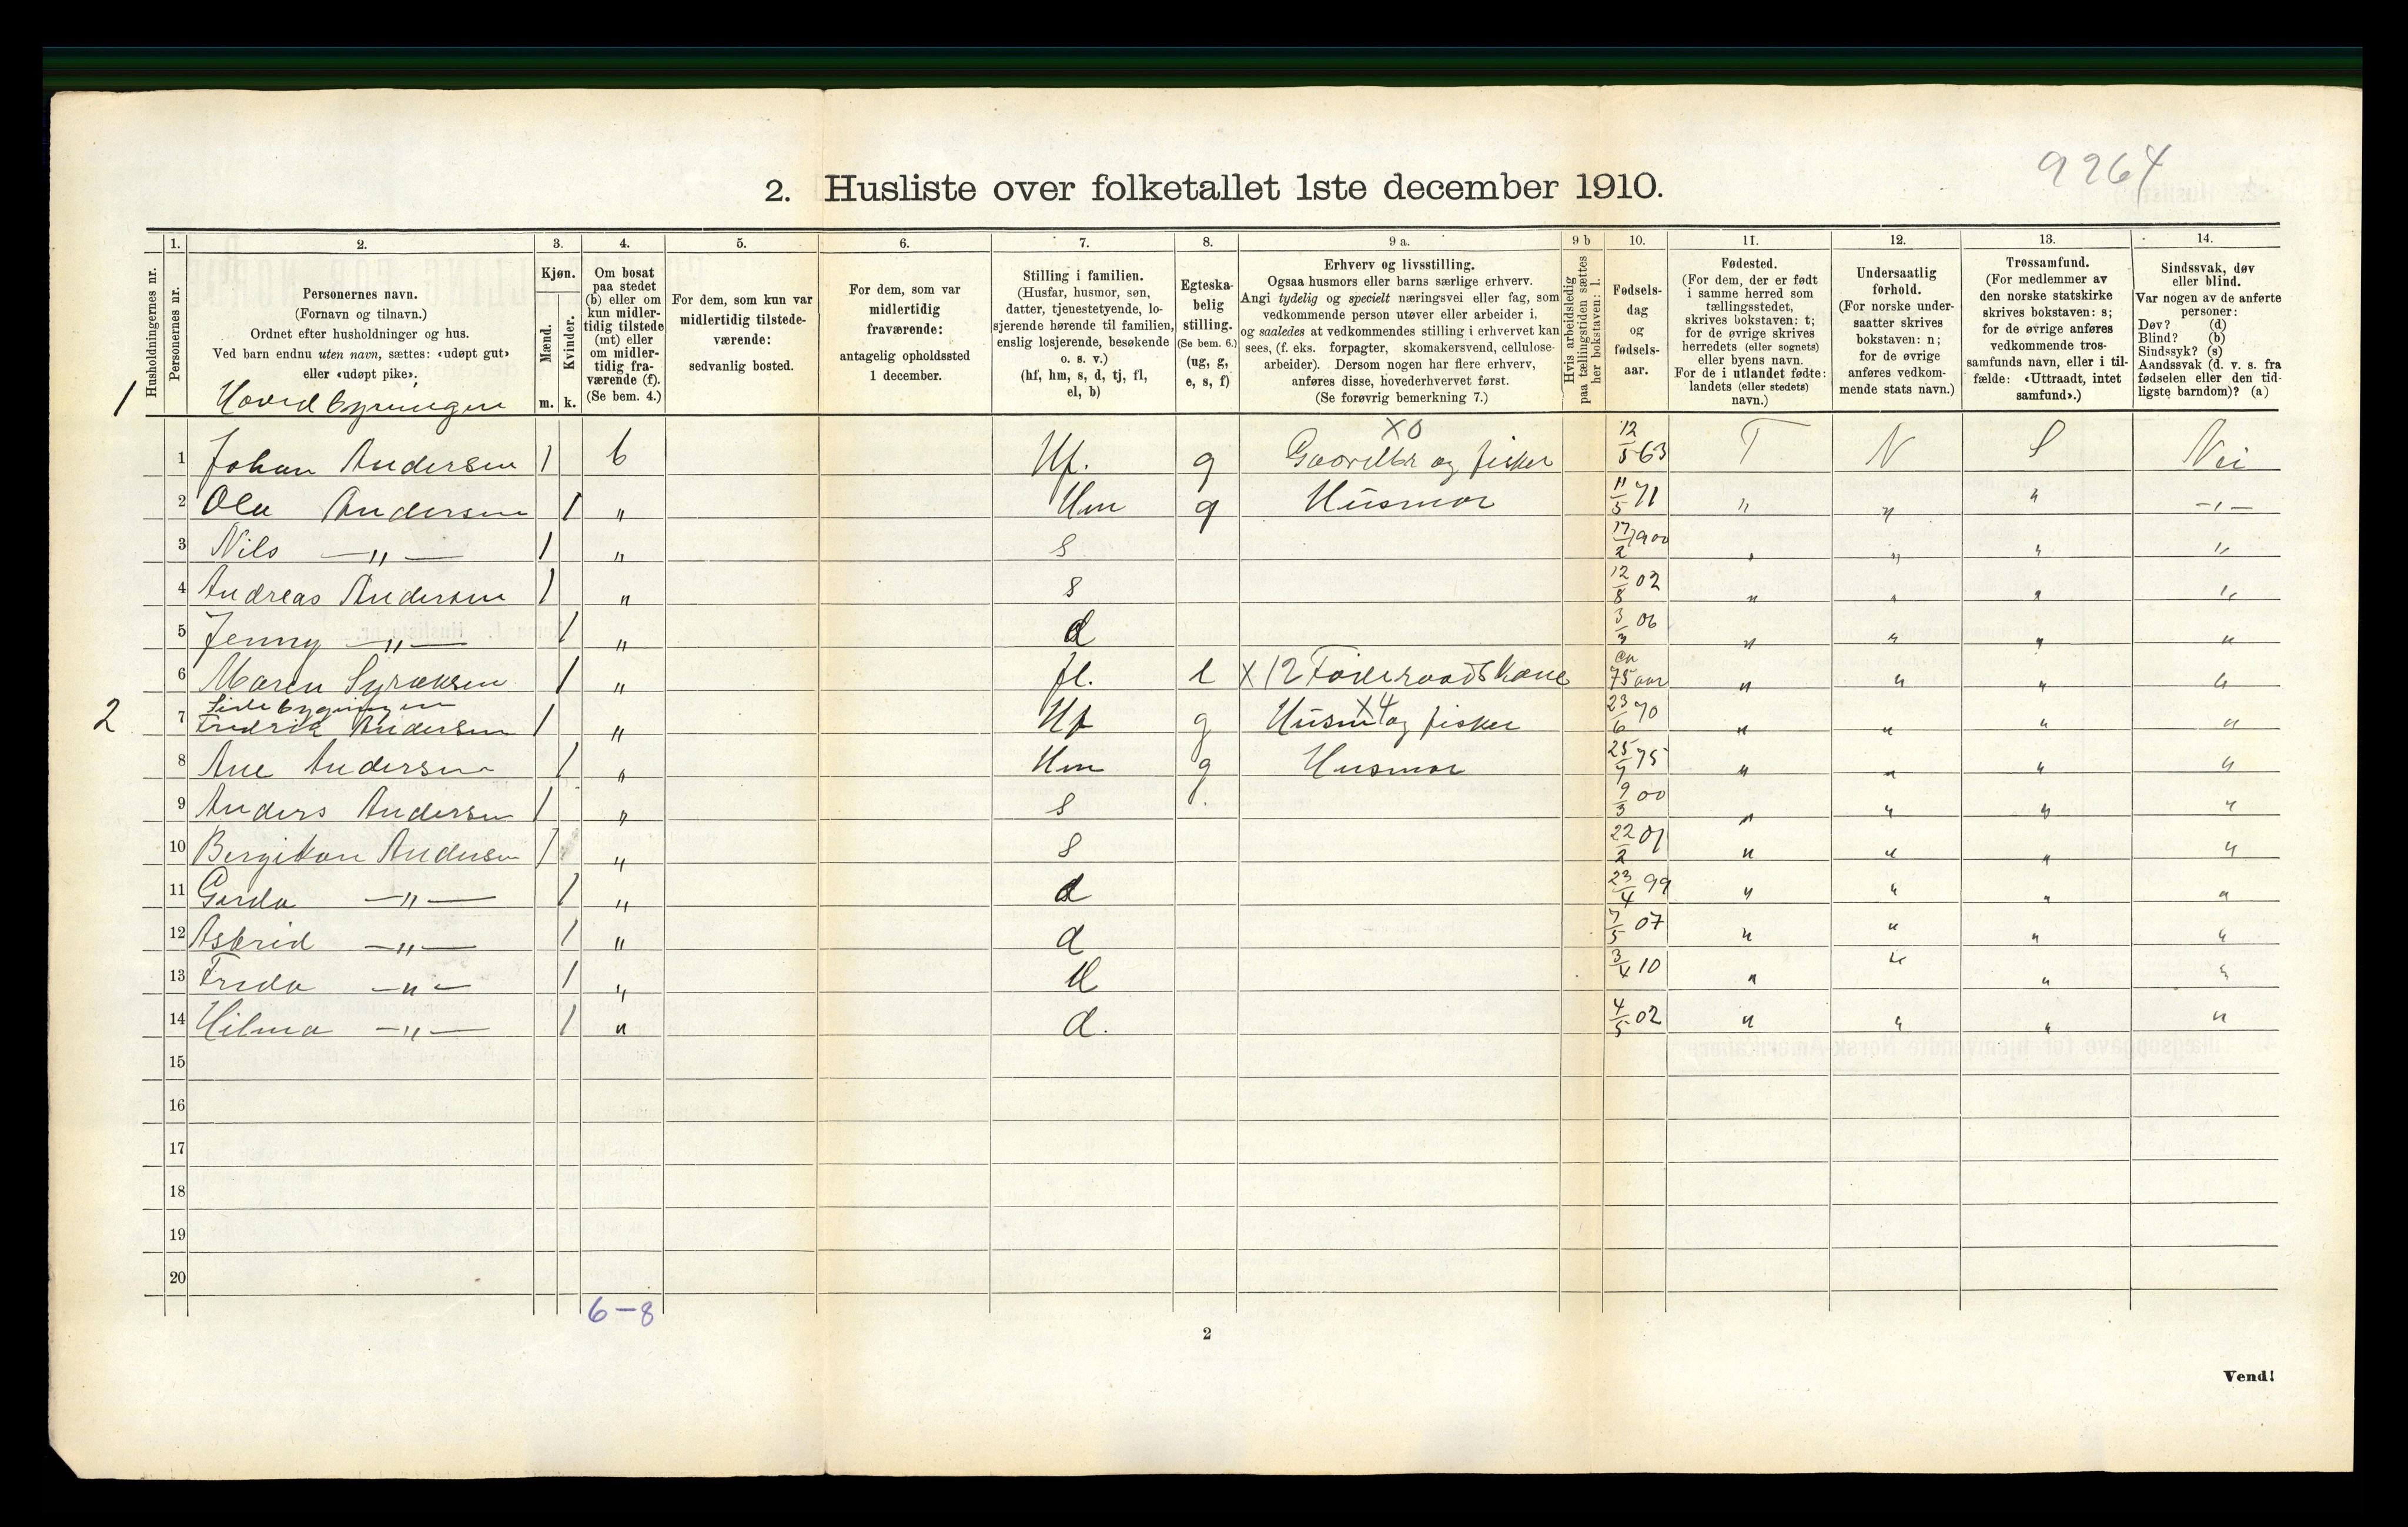 9264
2. Husliste over folketallet 1ste december 1910.
Husholdningernes nr.
1. Personernes nr.
2. Personernes navn.
(Fornavn og tilnavn.)
Ordnet efter husholdninger og hus.
Ved barn endnu uten navn, sættes: «udøpt gut»
eller «udøpt pike».
3. Kjøn.
Mænd. m.
Kvinder. k.
4. Om bosat
paa stedet
(b) eller om
kun midler-
tidig tilstede
(mt) eller
om midler-
tidig fra-
værende (f).
(Se bem. 4.)
5. For dem, som kun var
midlertidig tilstede-
værende:
sedvanlig bosted.
6. For dem, som var
midlertidig
fraværende:
antagelig opholdssted
1 december.
7. Stilling i familien.
(Husfar, husmor, søn,
datter, tjenestetyende, lo-
sjerende hørende til familien,
enslig losjerende, besøkende
o. s. v.)
(hf, hm, s, d, tj, fl,
el, b)
8. Egteska-
belig
stilling.
(Se bem. 6.)
(ug, g,
e, s, f)
9 a. Erhverv og livsstilling.
Ogsaa husmors eller barns særlige erhverv.
Angi tydelig og specielt næringsvei eller fag, som
vedkommende person utøver eller arbeider i,
og saaledes at vedkommendes stilling i erhvervet kan
sees, (f. eks. forpagter, skomakersvend, cellulose-
arbeider). Dersom nogen har flere erhverv,
anføres disse, hovederhvervet først.
(Se forøvrig bemerkning 7.)
9 b Hvis arbeidsledig
paa tællingstiden sættes
her bokstaven: l.
10. Fødsels-
dag
og
fødsels-
aar.
11. Fødested.
(For dem, der er født
i samme herred som
tællingsstedet,
skrives bokstaven: t;
for de øvrige skrives
herredets (eller sognets)
eller byens navn.
For de i utlandet fødte:
landets (eller stedets)
navn.)
12. Undersaatlig
forhold.
(For norske under-
saatter skrives
bokstaven: n;
for de øvrige
anføres vedkom-
mende stats navn.)
13. Trossamfund.
(For medlemmer av
den norske statskirke
skrives bokstaven: s;
for de øvrige anføres
vedkommende tros-
samfunds navn, eller i til-
fælde: «Uttraadt, intet
samfund».)
14. Sindssvak, døv
eller blind.
Var nogen av de anførte
personer:
Døv? (d)
Blind? (b)
Sindssyk? (s)
Aandssvak (d. v. s. fra
fødselen eller den tid-
ligste barndom)? (a)
1 Hovedbygningen
1 Johan Andersen 1 b Hf. g X0 og fisker 12/5 63 T N S Nei
2 Andersen 1 " Hm g Husmor 11/5 71 " " " -"-
3 Nils -"- 1 " s 17/2 1900 " " " "
4 Andreas Andersen 1 " s 12/8 02 " " " "
5 Jenny -"- 1 " d 3/3 06 " " " "
6 Maren 1 " fl. e X12 Føderaadskone ca 75 aar " " " "
2 Sidebygningen
7 Fredrik Andersen 1 " Hf g X4 Husm og fisker 23/6 70 " " " "
8 Ane Andersen 1 " Hm g Husmor 25/7 75 " " " "
9 Anders Andersen 1 " s 9/3 00 " " " "
10 Andersen 1 " s 22/2 01 " " " "
11 Gerda -"- 1 " d 23/4 99 " " " "
12 Astrid -"- 1 " d 7/5 07 " " " "
13 Frida -"- 1 " d 3/4 10 " " " "
14 Hilma -"- 1 " d. 4/5 02 " " " "
15
16
17
18
19
20
6-8
2
Vend!